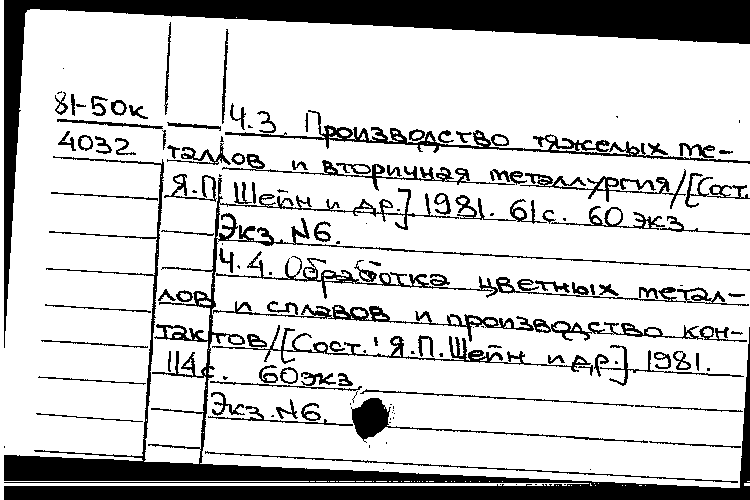 81-50к
4032
Ч.3. Производство тяжелых ме-
таллов и вторичная металлургия/[Сост.
Я.П. Шейн и др.]. 1981. 61с. 60 экз.
Экз. №6.
Ч.4. Обработка цветных метал-
лов и сплавов и производство кон-
тактов/[Сост.: Я.П. Шейн и др.]. 1981.
114с. 60экз.
Экз. №6.